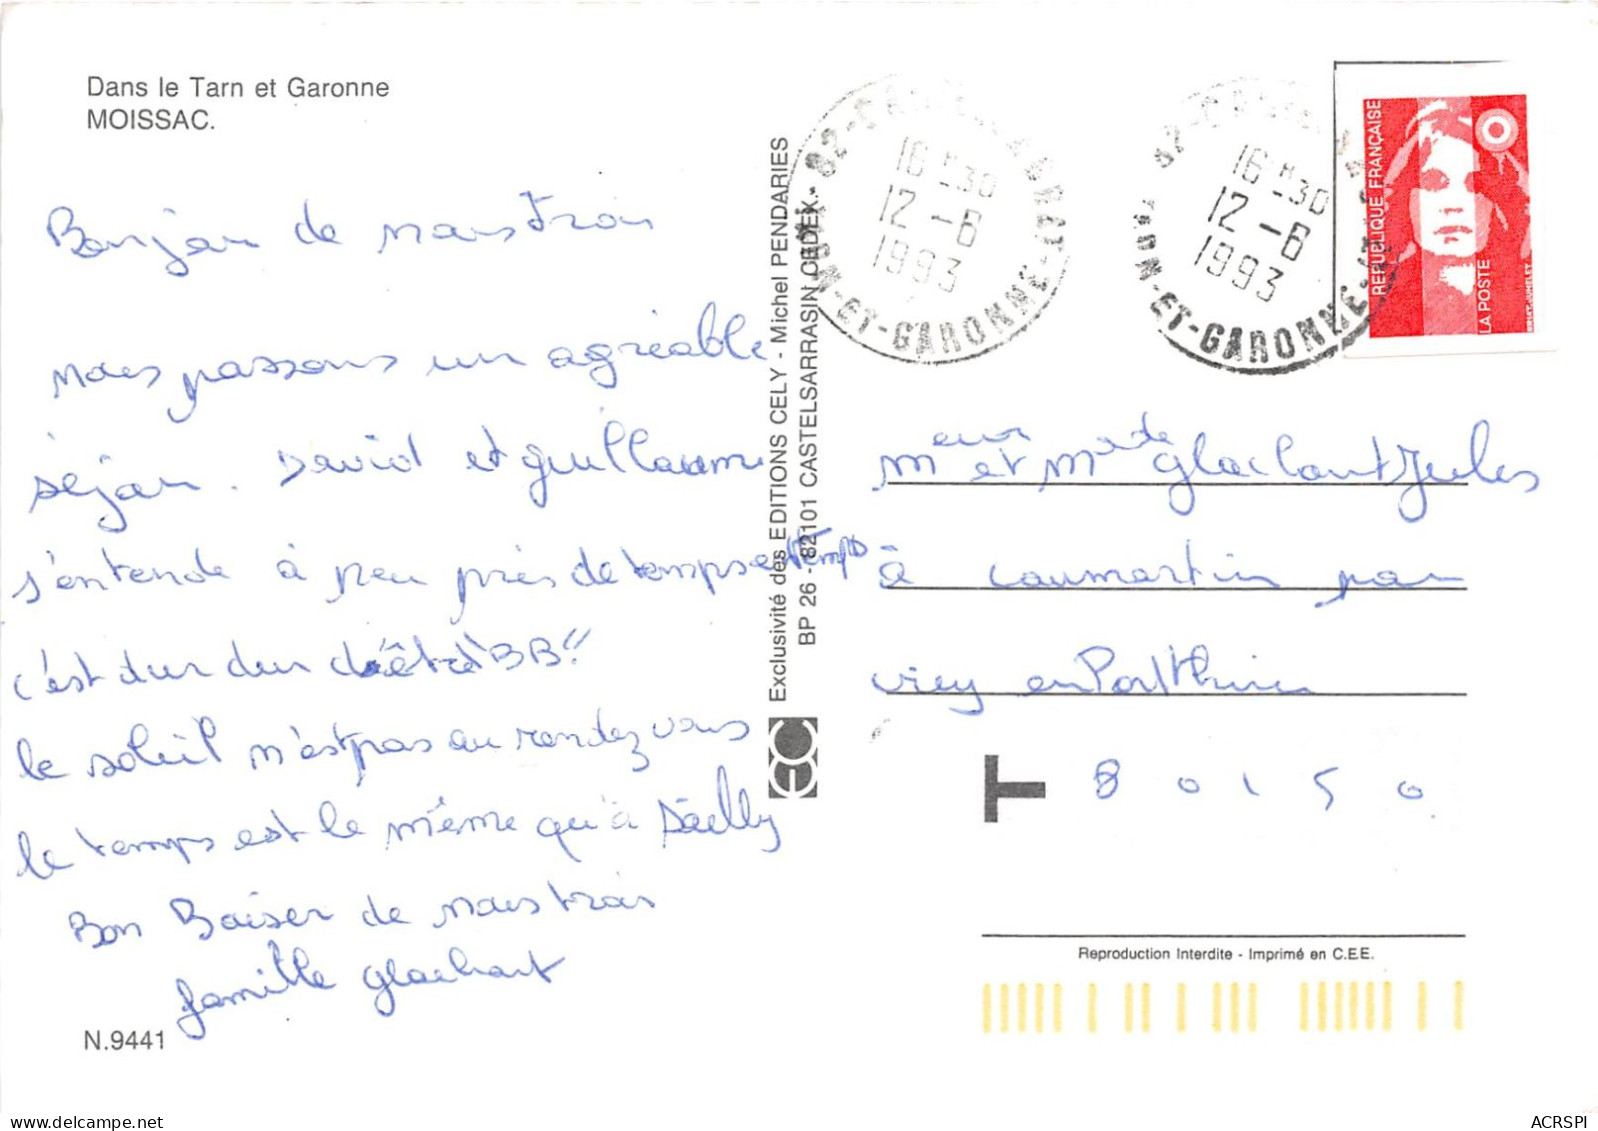 Dans le Tarn et Garonne
MOISSAC.
Bonjour de nous trois
nous passons un agréable
séjour. David et guillaume
s'entende à peu près de temps en temps
c'est dur dur d'être BB!!
le soleil n'est pas au rendez vous
le temps est le même qu'à Sailly
Bon Baiser de nous trois
famille glachant
N.9441
Exclusivité des EDITIONS CELY - Michel PENDARIES
BP 26 - 82101 CASTELSARRASIN CEDEX.
EC
16 H 30
12 - 6
1993
TARN-ET-GARONNE
16 H 30
12 - 6
1993
TARN-ET-GARONNE
REPUBLIQUE FRANÇAISE
LA POSTE
BRIAT-JUMELET
meur et made glachant Jules
à caumartin par
crecy en Ponthieu
T 80150
Reproduction Interdite - Imprimé en C.E.E.
ACRSPI